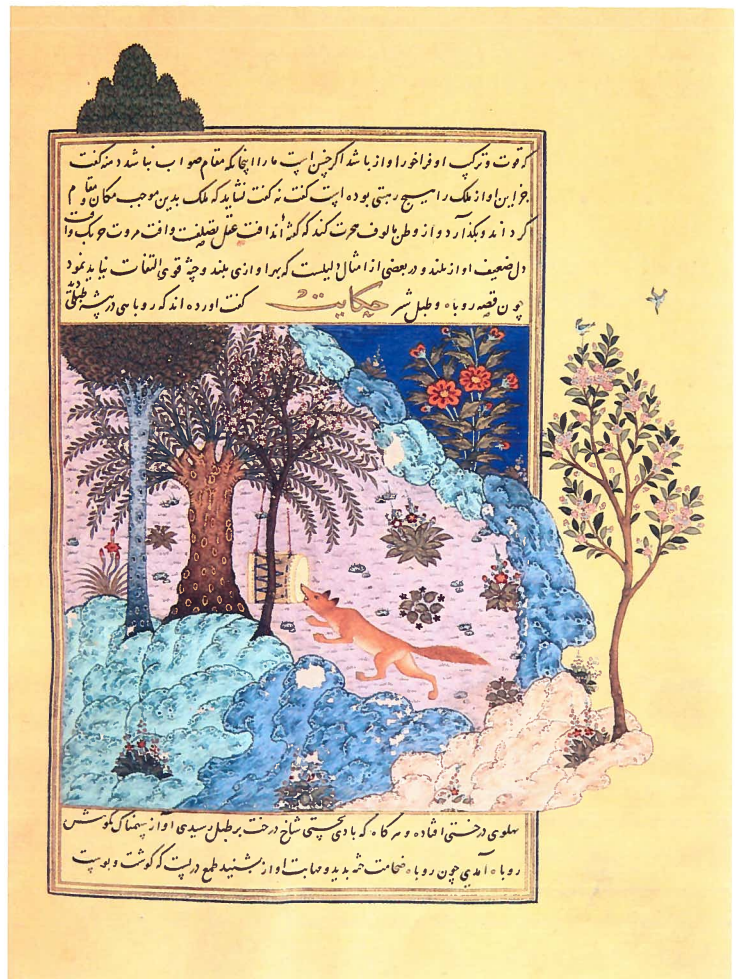 که قوت و ترکیب او فراخور آواز باشد اگر چنین است ما را اینجا که مقام صواب نباشد دمنه گفت
جز این آواز ملک را هیچ ریبتی بوده است گفت نه گفت نشاید که ملک بدین موجب مکان و مقام
کرداند و بگذارد و از وطن مالوف هجرت کند که گفته‌اند آفت عقل تصلفست و آفت مروت چربک و آفت
دل ضعیف آواز بلند و در بعضی از امثال دلیلست که بهر آوازی بلند و جثه قوی التفات نباید نمود
چون قصه روباه و طبل شیر حکایت گفت آورده اند که روباهی در بیشه طبلی دید
پهلوی درختی افتاده و هرگاه که بادی بجستی شاخ درخت بر طبل رسیدی آواز سهمناک بگوش
روباه آمدی چون روباه ضخامت جثه بدید و مهابت آواز بشنید طمع دربست که گوشت و پوست